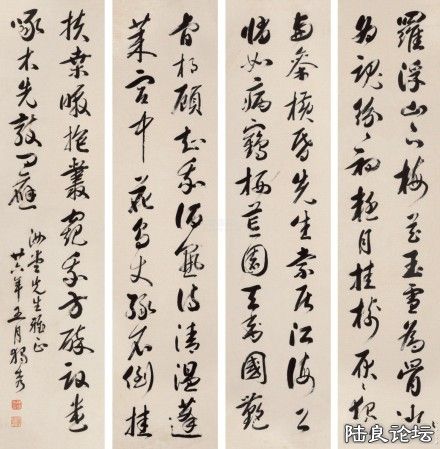 羅浮山下梅花玉雪為骨冰
為魂紛紛初疑月挂樹耿耿獨
與參橫昏先生索居江海上
悄如病鶴栖荒園天香國艷
肯相顧知我酒熟詩清溫蓬
萊宮中花鳥使綠衣倒挂
扶桑暾抱叢窺我方醉故遣
啄木先敲門
先生雅正
廿六年五月獨秀
陆良论坛